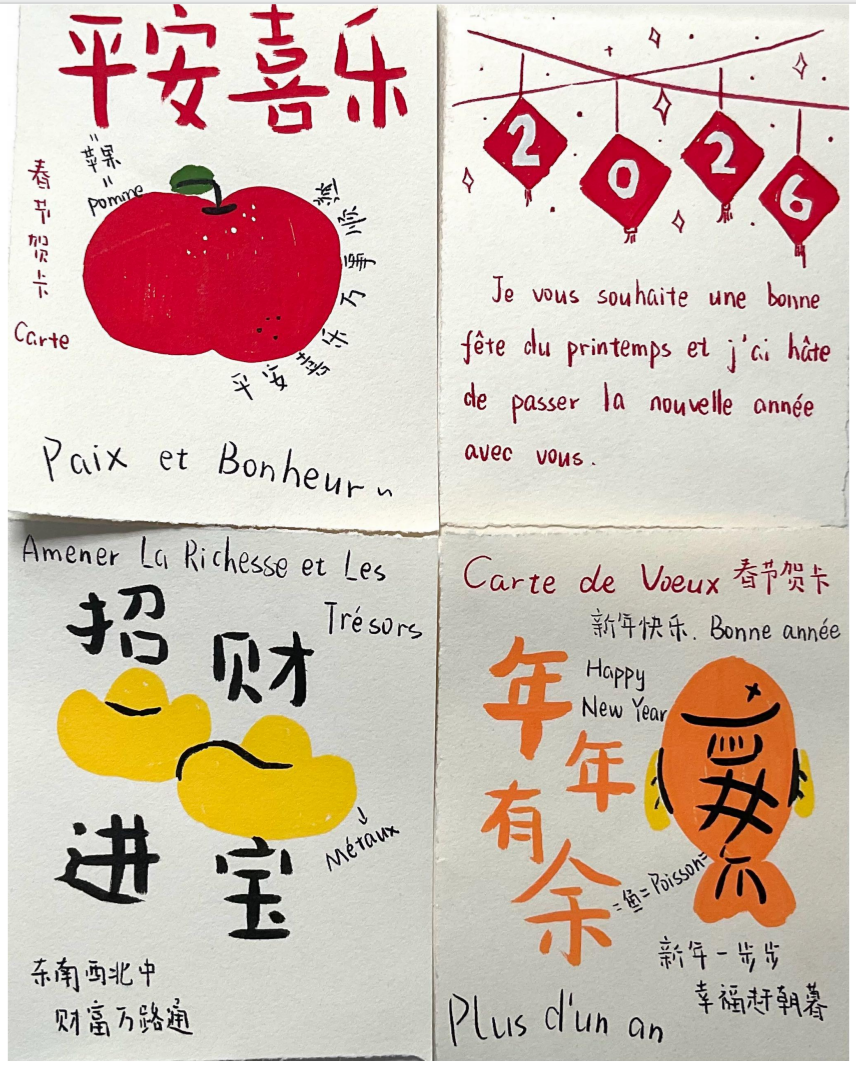 平安喜乐
"苹果
=
Pomme
春节贺卡
Carte
平安喜乐万事顺遂
Paix et Bonheur~
2026
Je vous souhaite une bonne
fête du printemps et j'ai hâte
de passer la nouvelle année
avec vous.
Amener La Richesse et Les
Trésors
招财
进宝
Métaux
东南西北中
财富万路通
Carte de Voeux 春节贺卡
新年快乐. Bonne année
Happy
New Year
年年有余
=鱼=Poisson=
新年一步步
幸福赶朝暮
Plus d'un an